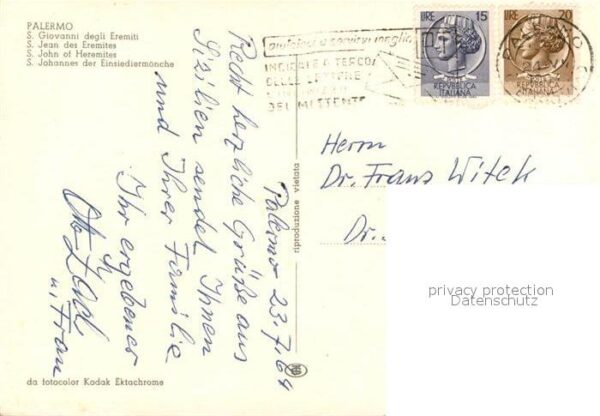 PALERMO
S. Giovanni degli Eremiti
S. Jean des Eremites
S. John of Heremites
S. Johannes der Einsiedlermönche
Palermo 23.7.64
Recht herzliche Grüße aus
Sizilien sendet Ihnen
und Ihrer Familie
Ihr ergebener
u. Frau
da fotocolor Kodak Ektachrome
riproduzione vietata
aiutateci a servirvi meglio
DELLE LETTERE
DEL MITTENTE
LIRE 15
REPVBBLICA
ITALIANA
LIRE 20
REPVBBLICA
ITALIANA
Herrn
Dr. Franz Witek
Dr.
privacy protection
Datenschutz